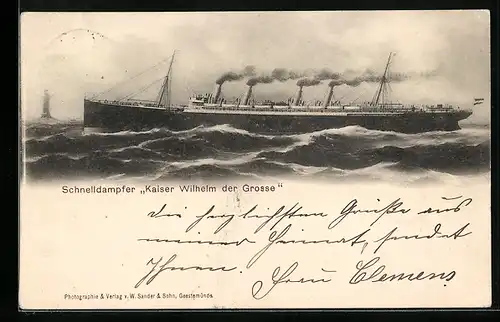 Schnelldampfer „Kaiser Wilhelm der Grosse“
die herzlichsten Grüße aus
meiner Heimat, sendet
Ihnen Frau Clemens
Photographie & Verlag v. W. Sander & Sohn, Geestemünde.